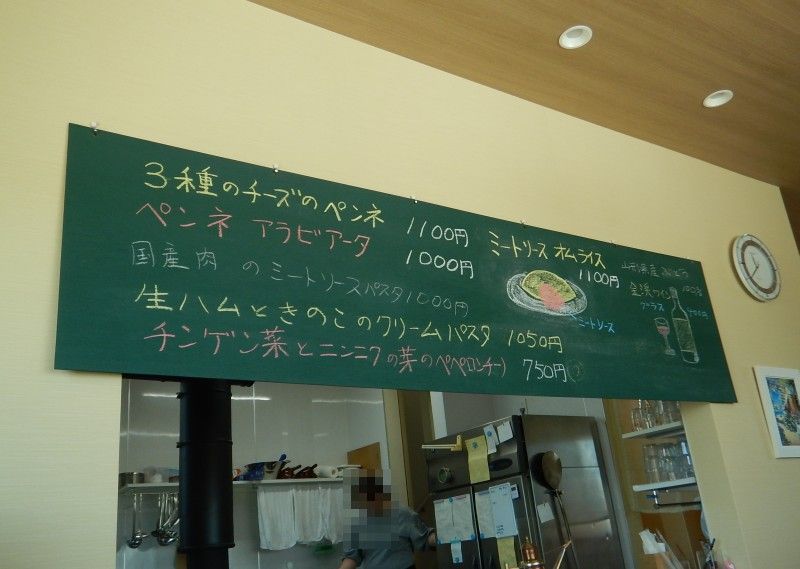 3種のチーズのペンネ 1100円
ペンネ アラビアータ 1000円
国産肉 のミートソースパスタ 1000円
生ハムときのこのクリームパスタ 1050円
チンゲン菜とニンニクの芽のペペロンチーノ 750円
ミートソース オムライス
1100円
ミートソース
山形県産
ワイン
グラス